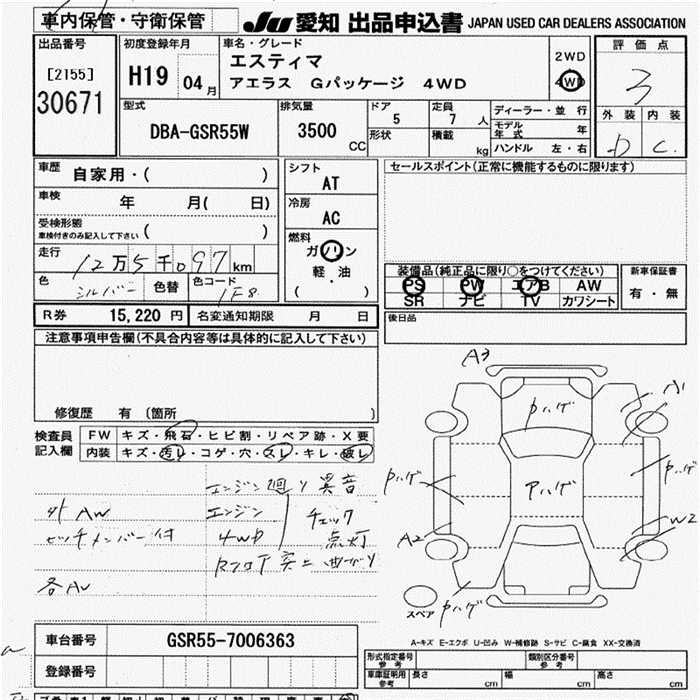 車内保管・守衛保管
JU 愛知 出品申込書 JAPAN USED CAR DEALERS ASSOCIATION
出品番号
[2155]
30671
初度登録年月
H19 04月
車名・グレード
エスティマ
アエラス Gパッケージ 4WD
2WD
4WD
評価点
3
外装 内装
D C
型式
DBA-GSR55W
排気量
3500 CC
ドア 5
形状
定員 7人
積載 kg
ディーラー・並行
モデル年式 年
ハンドル 左・右
車歴 自家用・( )
車検 年 月( 日)
受検形態
車検付きのみ記入して下さい ( )
走行 12万5千097km
色 シルバー 色替 色コード 1F8
シフト
AT
冷房
AC
燃料
ガソリン
軽・油
( )
セールスポイント(正常に機能するものに限ります)
装備品(純正品に限り○をつけてください)
PS PW エアB AW
SR ナビ TV カワシート
新車保証書
有・無
R券 15,220円 名変通知期限 月 日
後日品
注意事項申告欄(不具合内容等は具体的に記入して下さい)
修復歴 有 〔箇所 〕
検査員記入欄
FW キズ・飛石・ヒビ割・リペア跡・X要
内装 キズ・汚レ・コゲ・穴・スレ・キレ・破レ
エンジン廻り異音
外AW エンジン チェック
ヒッチメンバー付 4WD 点灯
曲がり
各AV
A3
Pハゲ
A1
Pハゲ
アハゲ
Pハゲ
A2
W2
スペア
Pハゲ
A-キズ E-エクボ U-凹み W-補修跡 S-サビ C-腐食 XX-交換済
車台番号 GSR55-7006363
登録番号
形式指定番号 参考
類別区分番号 参考
車庫証明用 参考 長さ cm 幅 cm 高さ cm